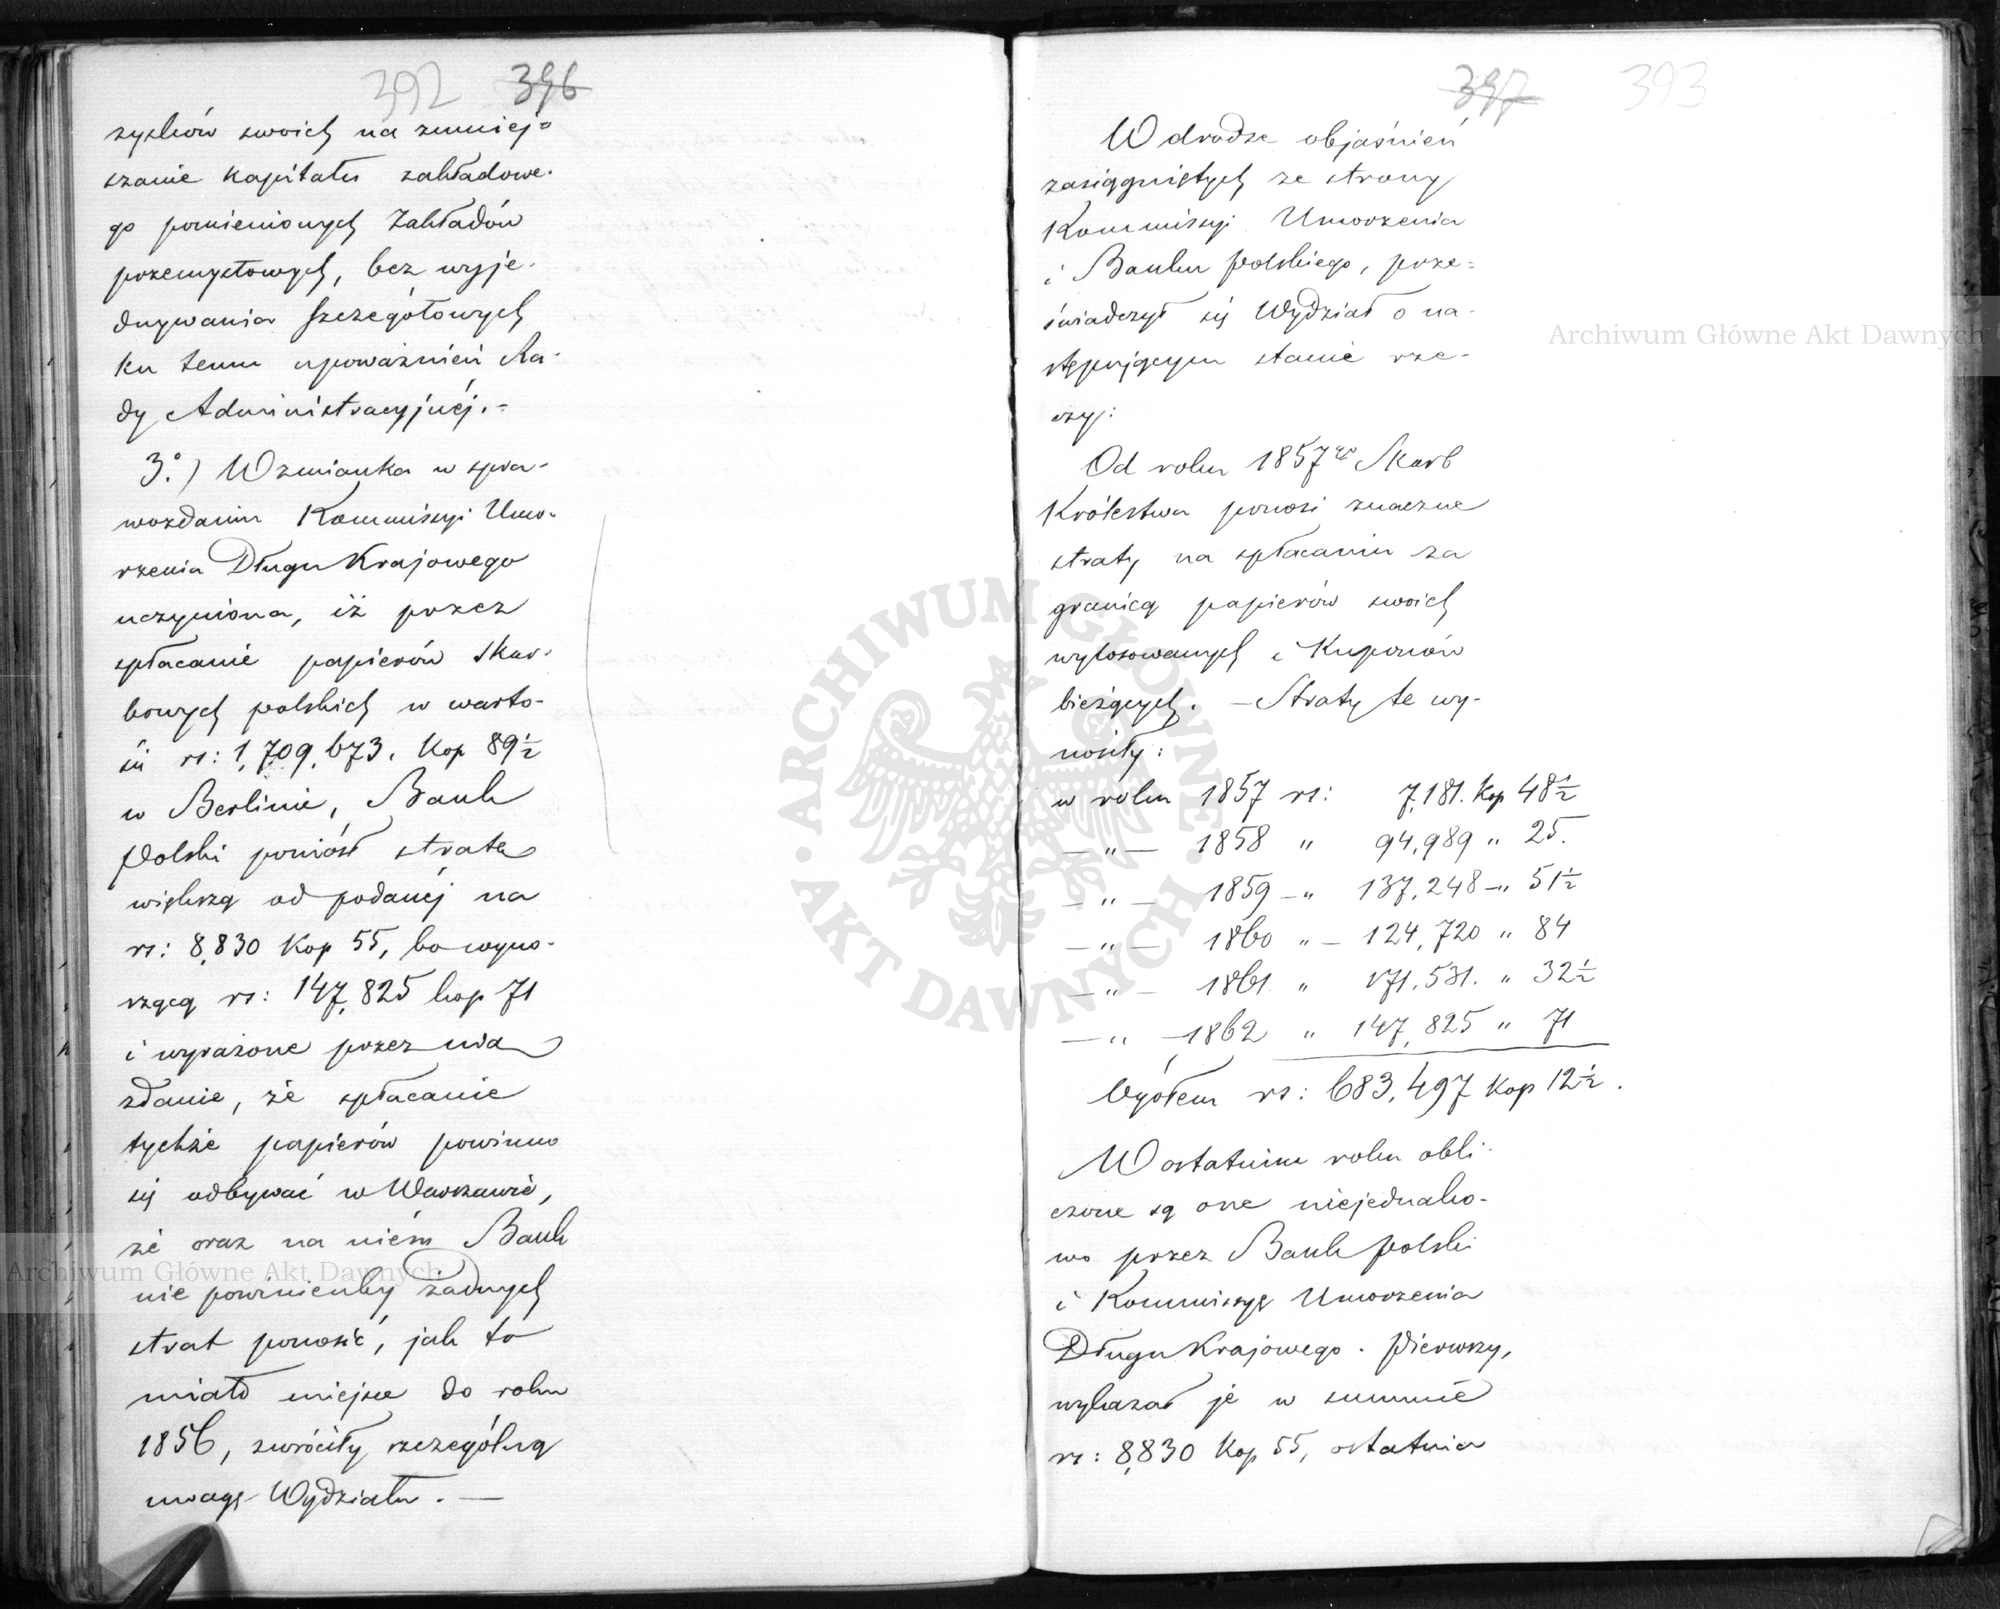 392 396
zysków swoich na zmniej=
szanie kapitału zakładowe-
go pomienionych Zakładów
przemysłowych, bez wyje-
dnywania szczegółowych
ku temu upoważnień Ra-
dy Administracyjnéj.-
3.°) Wzmianka w spra-
wozdaniu Kommissyi Umo-
rzenia Długu Krajowego
uczyniona, iż przez
spłacanie papierów skar-
bowych polskich w warto-
ści rs: 1,709,673. Kop 89½
w Berlinie, Bank
Polski poniósł stratę
większą od podanéj na
rs: 8,830 Kop 55, bo wyno-
szącą rs: 147,825 kop 71
i wyrażone przez nią
zdanie, że spłacanie
tychże papierów powinno
się odbywać w Warszawie,
że oraz na niém Bank
nie powinienby żadnych
strat ponosić, jak to
miało miejsce do roku
1856, zwróciły szczególną
uwagę Wydziału. —
397 393
W drodze objaśnień
zasiągniętych ze strony
Kommissyi Umorzenia
i Banku Polskiego, prze=
świadczył się Wydział o na-
stępującym stanie rze-
czy:
Od roku 1857go Skarb
Królestwa ponosi znaczne
straty na spłacaniu za
granicą papierów swoich
wylosowanych i Kuponów
bieżących. — Straty te wy-
nosiły:
w roku 1857 rs: 7,181. Kop 48½
— " — 1858 " 94,989 " 25.
— " — 1859 — " 137,248 — " 51½
— " — 1860 " — 124,720 " 84
— " — 1861 " 171,531. " 32½
— " — 1862 " 147,825 " 71
Wgółem rs: 683,497 Kop 12½.
W ostatnim roku obli-
czone są one niejednako-
wo przez Bank Polski
i Kommissyę Umorzenia
Długu Krajowego. Pierwszy,
wykazał je w summie
rs: 8,830 Kop 55, ostatnia
Archiwum Główne Akt Dawnych
Archiwum Główne Akt Dawnych
ARCHIWUM GŁÓWNE · AKT DAWNYCH ·